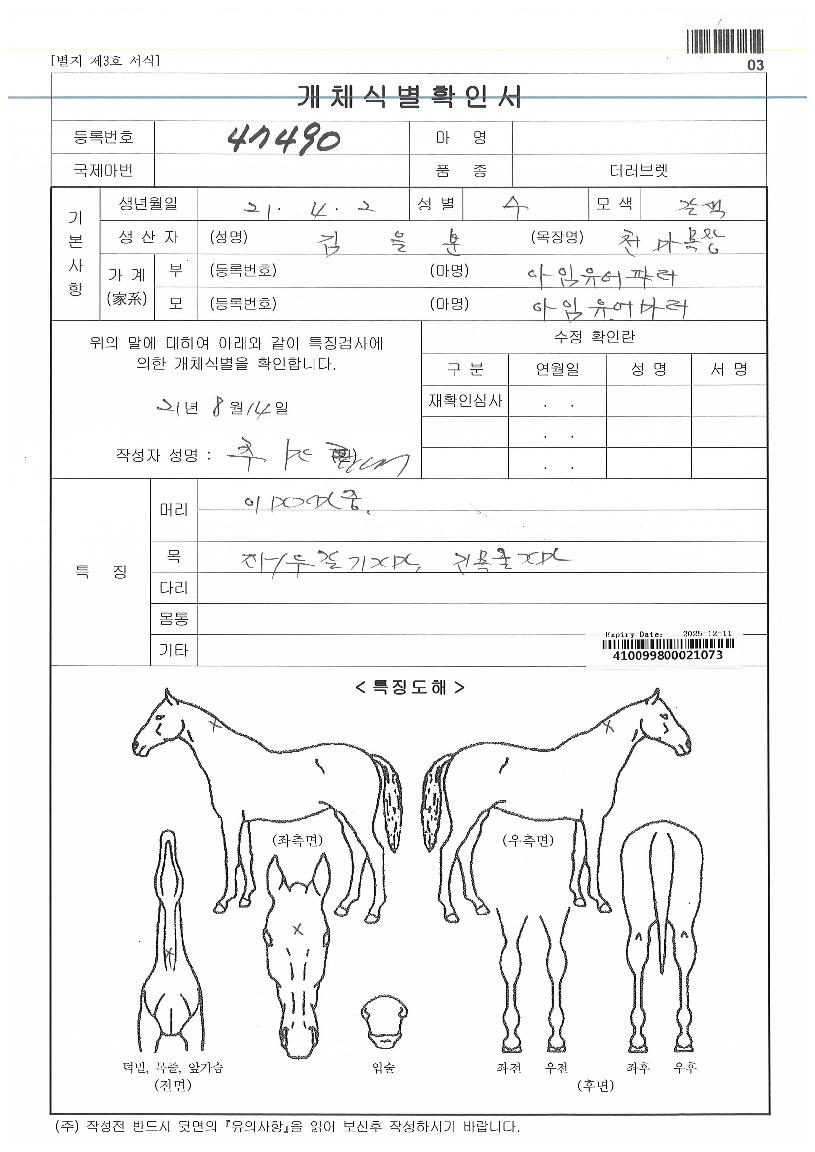 [별지 제3호 서식]
03
개체식별확인서
등록번호 47490 마 명
국제마번 품 종 더러브렛
기본사항
생년월일 21. 4. 2 성별 수 모색 갈색
생 산 자 (성명) 김 을 분 (목장명)
가 계 (家系)
부 (등록번호) (마명) 아임유어파더
모 (등록번호) (마명)
위의 말에 대하여 아래와 같이 특징검사에
의한 개체식별을 확인합니다.
21년 8월 14일
작성자 성명 : 추
수정 확인란
구 분 연월일 성 명 서 명
재확인심사 . .
. .
. .
특 징
머리
목
다리
몸통
기타
Expiry Date: 2025-12-11
410099800021073
< 특징도해 >
(좌측면) (우측면)
턱밑, 목줄, 앞가슴
(전면)
입술
좌전 우전 좌후 우후
(후면)
(주) 작성전 반드시 뒷면의 『유의사항』을 읽어 보신후 작성하시기 바랍니다.